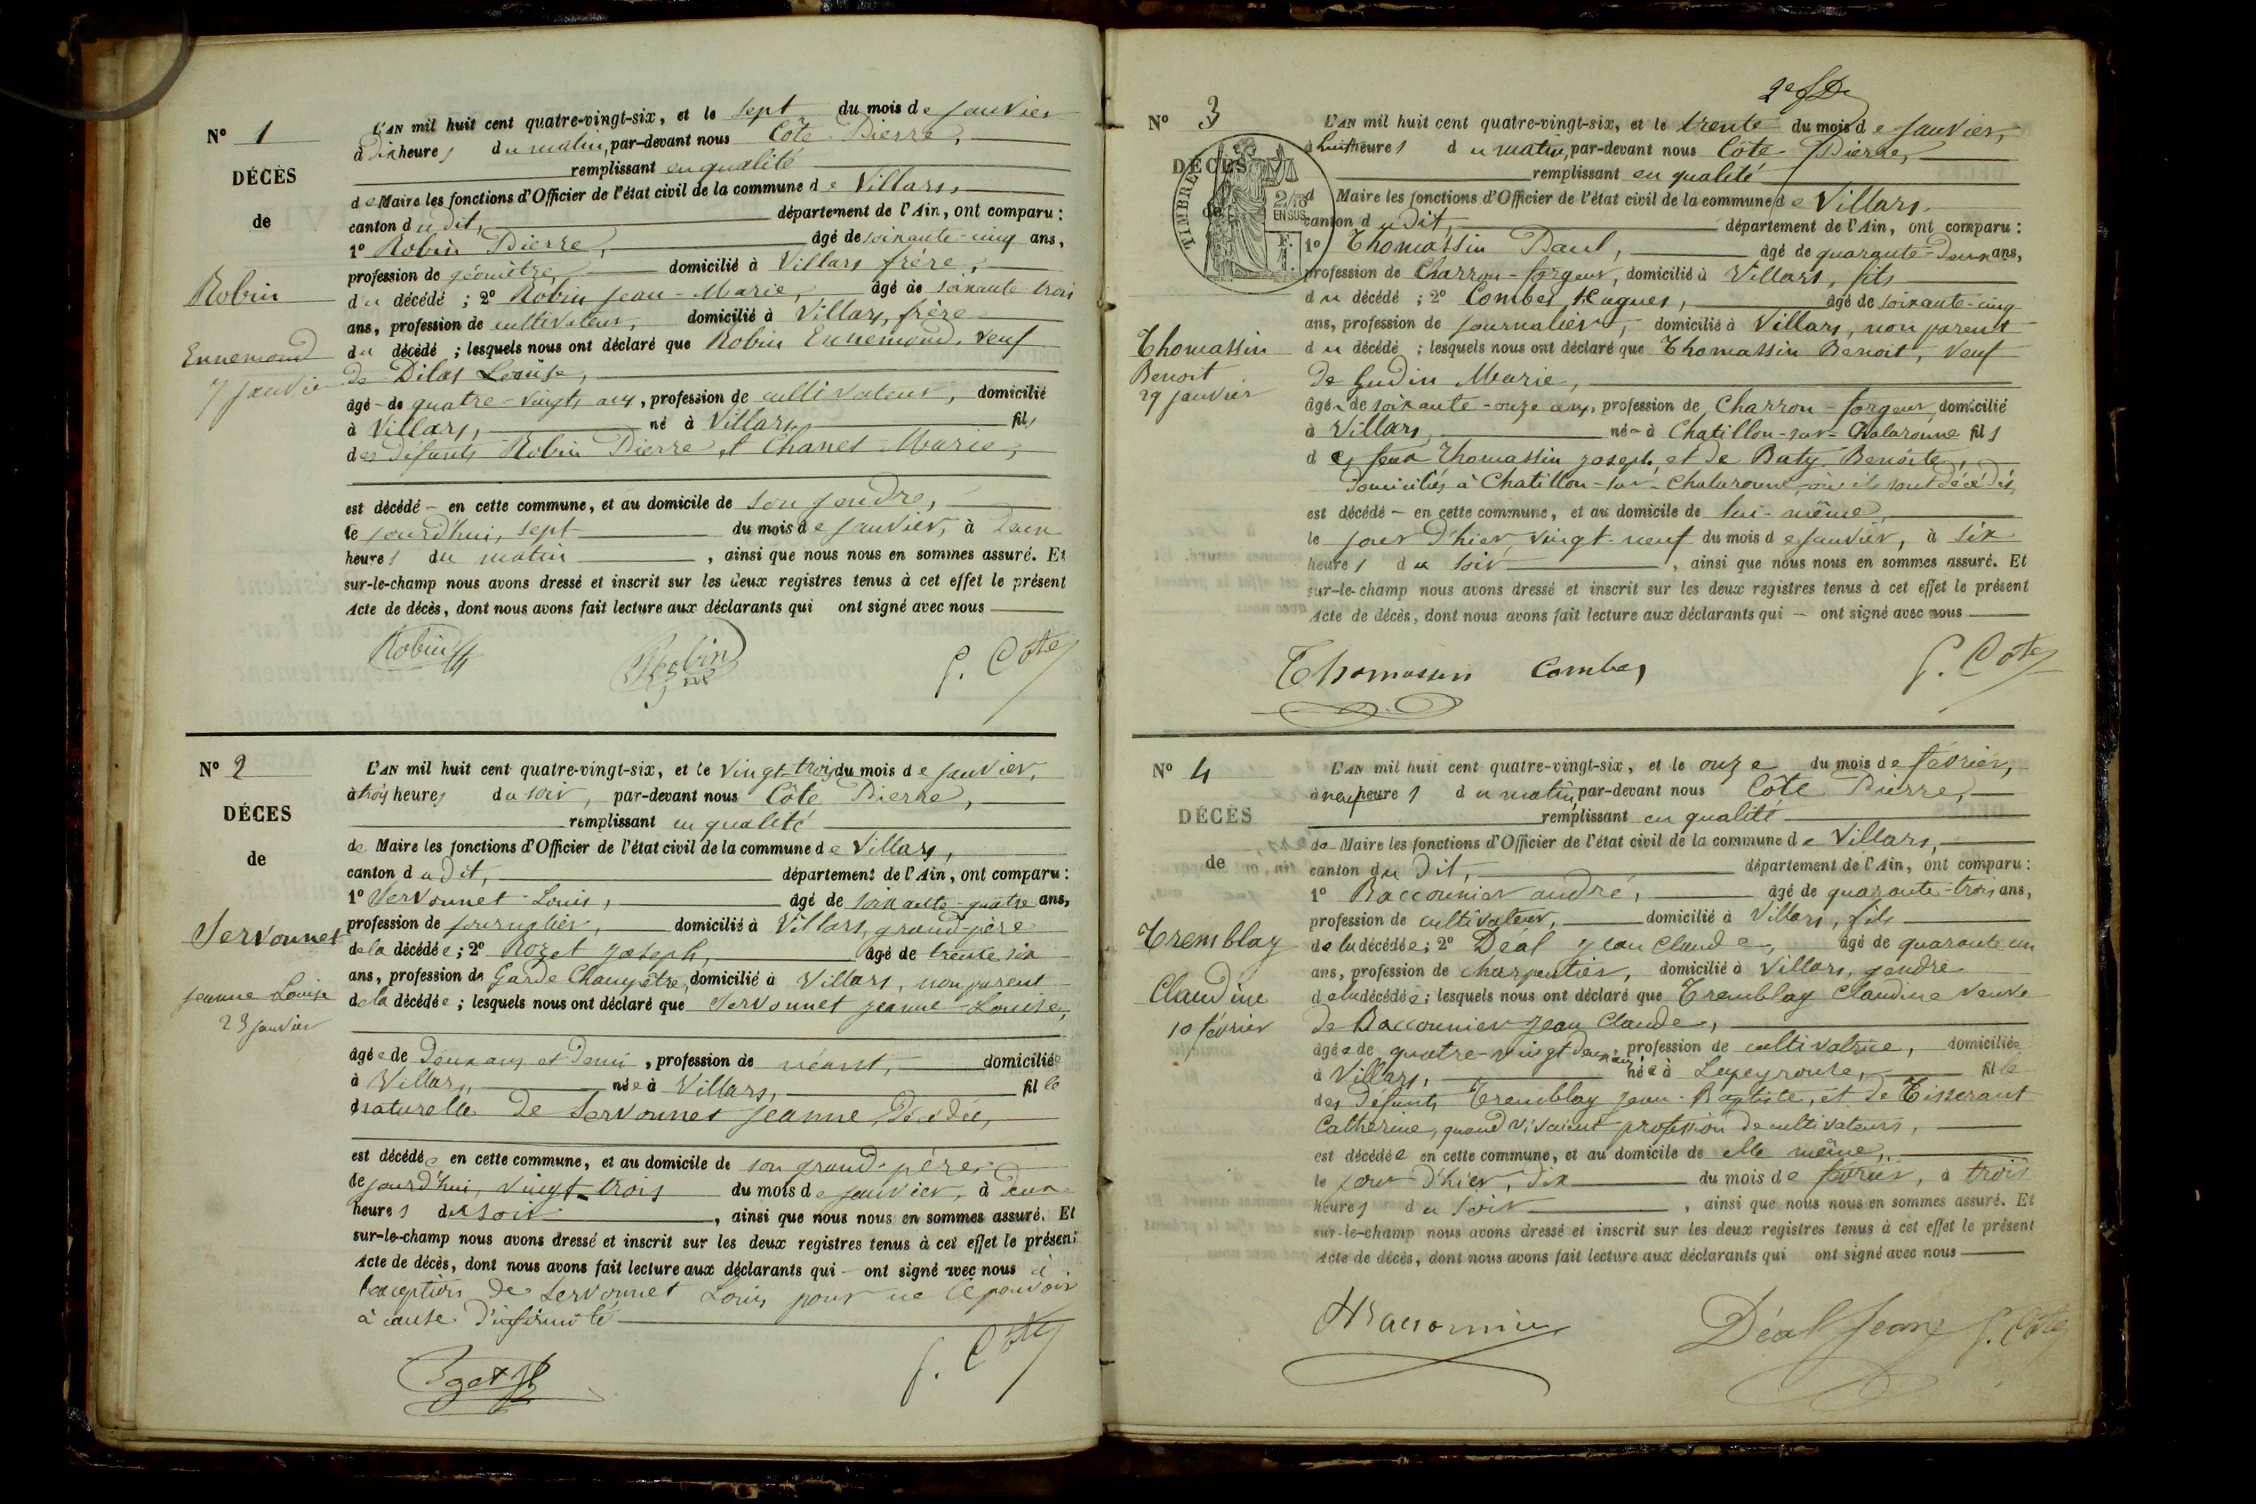 N° 1
DÉCÈS
de
Robin
Ennemond
7 janvier
L'AN mil huit cent quatre-vingt-six, et le sept du mois de janvier
à dix heures du matin, par-devant nous Côte Pierre,
remplissant en qualité
de Maire les fonctions d'Officier de l'état civil de la commune de Villars,
canton du dit, département de l'Ain, ont comparu :
1° Robin Pierre, âgé de soixante-cinq ans,
profession de géomètre, domicilié à Villars frère,
du décédé ; 2° Robin Jean-Marie, âgé de soixante trois
ans, profession de cultivateur, domicilié à Villars, frère
du décédé ; lesquels nous ont déclaré que Robin Ennemond, veuf
de Dilas Louise,
âgé de quatre-vingts ans, profession de cultivateur, domicilié
à Villars, né à Villars, fils
des défunts Robin Pierre et Chanel Marie,
est décédé en cette commune, et au domicile de son gendre,
le jourd'hui, sept du mois de janvier, à deux
heures du matin, ainsi que nous nous en sommes assuré. Et
sur-le-champ nous avons dressé et inscrit sur les deux registres tenus à cet effet le présent
Acte de décès, dont nous avons fait lecture aux déclarants qui ont signé avec nous
Robin Robin P. Côte
N° 2
DÉCES
de
Servonnet
Jeanne Louise
23 janvier
L'AN mil huit cent quatre-vingt-six, et le vingt-trois du mois de janvier,
à trois heures du soir, par-devant nous Côte Pierre,
remplissant en qualité
de Maire les fonctions d'Officier de l'état civil de la commune de Villars,
canton du dit, département de l'Ain, ont comparu :
1° Servonnet Louis, âgé de soixante-quatre ans,
profession de journalier, domicilié à Villars, grand-père
de la décédée ; 2° Rozet Joseph, âgé de trente six
ans, profession de Garde Champêtre, domicilié à Villars, non parent
de la décédée ; lesquels nous ont déclaré que Servonnet Jeanne-Louise,
âgée de deux ans et demi, profession de néant, domiciliée
à Villars, née à Villars, fille
naturelle de Servonnet Jeanne, décédée,
est décédée en cette commune, et au domicile de son grand-père
le jourd'hui, vingt-trois du mois de janvier, à deux
heures du soir, ainsi que nous nous en sommes assuré. Et
sur-le-champ nous avons dressé et inscrit sur les deux registres tenus à cet effet le présent
Acte de décès, dont nous avons fait lecture aux déclarants qui ont signé avec nous à
l'exception de Servonnet Louis pour ne le pouvoir
à cause d'infirmité
P. Côte
2e f
N° 3
DÉCÈS
de
TIMBRE
2/10 EN SUS
Thomassin
Benoit
29 janvier
L'AN mil huit cent quatre-vingt-six, et le trente du mois de janvier,
à huit heures du matin, par-devant nous Côte Pierre,
remplissant en qualité
d Maire les fonctions d'Officier de l'état civil de la commune de Villars,
canton du dit, département de l'Ain, ont comparu :
1° Thomassin Paul, âgé de quarante-deux ans,
profession de Charron-forgeur, domicilié à Villars, fils
du décédé ; 2° Combes Hugues, âgé de soixante-cinq
ans, profession de journalier, domicilié à Villars, non parent
du décédé ; lesquels nous ont déclaré que Thomassin Benoit, veuf
de Gudin Marie,
âgé de soixante-onze ans, profession de Charron-forgeur, domicilié
à Villars, né à Chatillon-sur-Chalaronne fils
des feux Thomassin Joseph, et de Buty Benoîte,
domiciliés à Chatillon-sur-Chalaronne, où ils sont décédés,
est décédé en cette commune, et au domicile de lui-même,
le jour d'hier, vingt-neuf du mois de janvier, à six
heures du soir, ainsi que nous nous en sommes assuré. Et
sur-le-champ nous avons dressé et inscrit sur les deux registres tenus à cet effet le présent
Acte de décès, dont nous avons fait lecture aux déclarants qui ont signé avec nous
Thomassin Combes P. Côte
N° 4
DÉCÈS
de
Tremblay
Claudine
10 février
L'AN mil huit cent quatre-vingt-six, et le onze du mois de février,
à neuf heures du matin, par-devant nous Côte Pierre,
remplissant en qualité
de Maire les fonctions d'Officier de l'état civil de la commune de Villars,
canton du dit, département de l'Ain, ont comparu :
1° Baccounier andré, âgé de quarante-trois ans,
profession de cultivateur, domicilié à Villars, fils
de la décédée ; 2° Déal Jean Claude, âgé de quarante un
ans, profession de charpentier, domicilié à Villars, gendre
de la décédée ; lesquels nous ont déclaré que Tremblay Claudine veuve
de Baccounier Jean Claude,
âgée de quatre-vingt deux ans, profession de cultivatrice, domiciliée
à Villars, née à Lapeyrouse, fille
des défunts Tremblay Jean-Baptiste, et de Tisserant
Catherine, quand vivaient profession de cultivateurs,
est décédée en cette commune, et au domicile de elle même,
le jour d'hier, dix du mois de février, à trois
heures du soir, ainsi que nous nous en sommes assuré. Et
sur-le-champ nous avons dressé et inscrit sur les deux registres tenus à cet effet le présent
Acte de décès, dont nous avons fait lecture aux déclarants qui ont signé avec nous
Déal Jean P. Côte